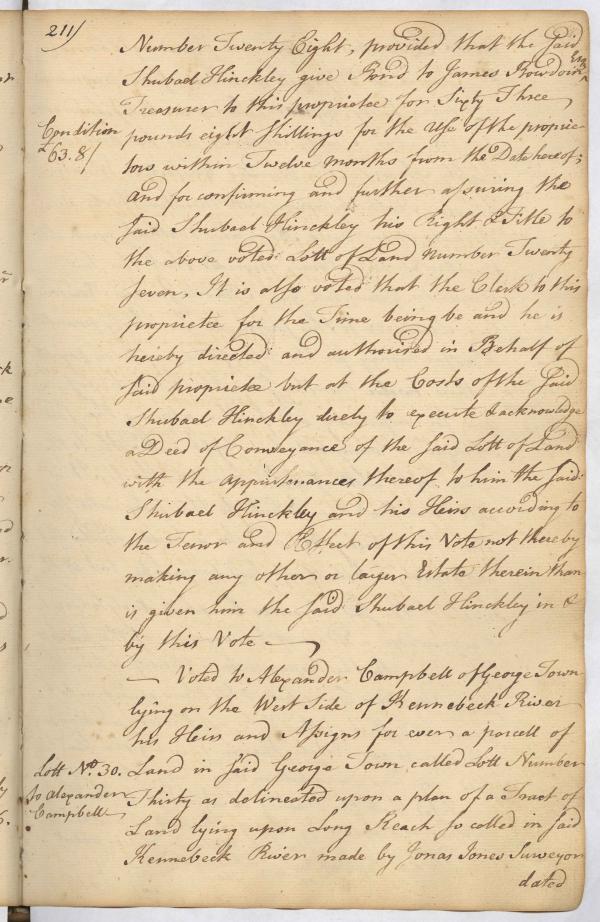 211/
Number Twenty Eight, provided that the Said
Shubael Hinckley give Bond to James Bowdoin Esqr
Treasurer to this proprietee for Sixty Three
Condition
£63.8/
pounds eight Shillings for the Use of the proprie-
tors within Twelve months from the Date hereof;
and for confirming and further assuring the
Said Shubael Hinckley his Right & Title to
the above voted Lott of Land number Twenty
Seven, It is also voted that the Clerk to this
proprietee for the Time being be and he is
hereby directed and authorised in Behalf of
Said proprietee but at the Costs of the Said
Shubael Hinckley duely to execute & acknowledge
a Deed of Conveyance of the Said Lott of Land
with the appurtenances thereof to him the Said
Shubael Hinckley and his Heirs according to
the Tenor and Effect of this Vote not thereby
making any other or larger Estate therein than
is given him the Said Shubael Hinckley in &
by this Vote —
— Voted to Alexander Campbell of George Town
lying on the West Side of Kennebeck River
his Heirs and Assigns for ever a parcell of
Lott No. 30.
to Alexander
Campbell
Land in Said George Town called Lott Number
Thirty as delineated upon a plan of a Tract of
Land lying upon Long Reach so called in Said
Kennebeck River made by Jonas Jones Surveyor
dated